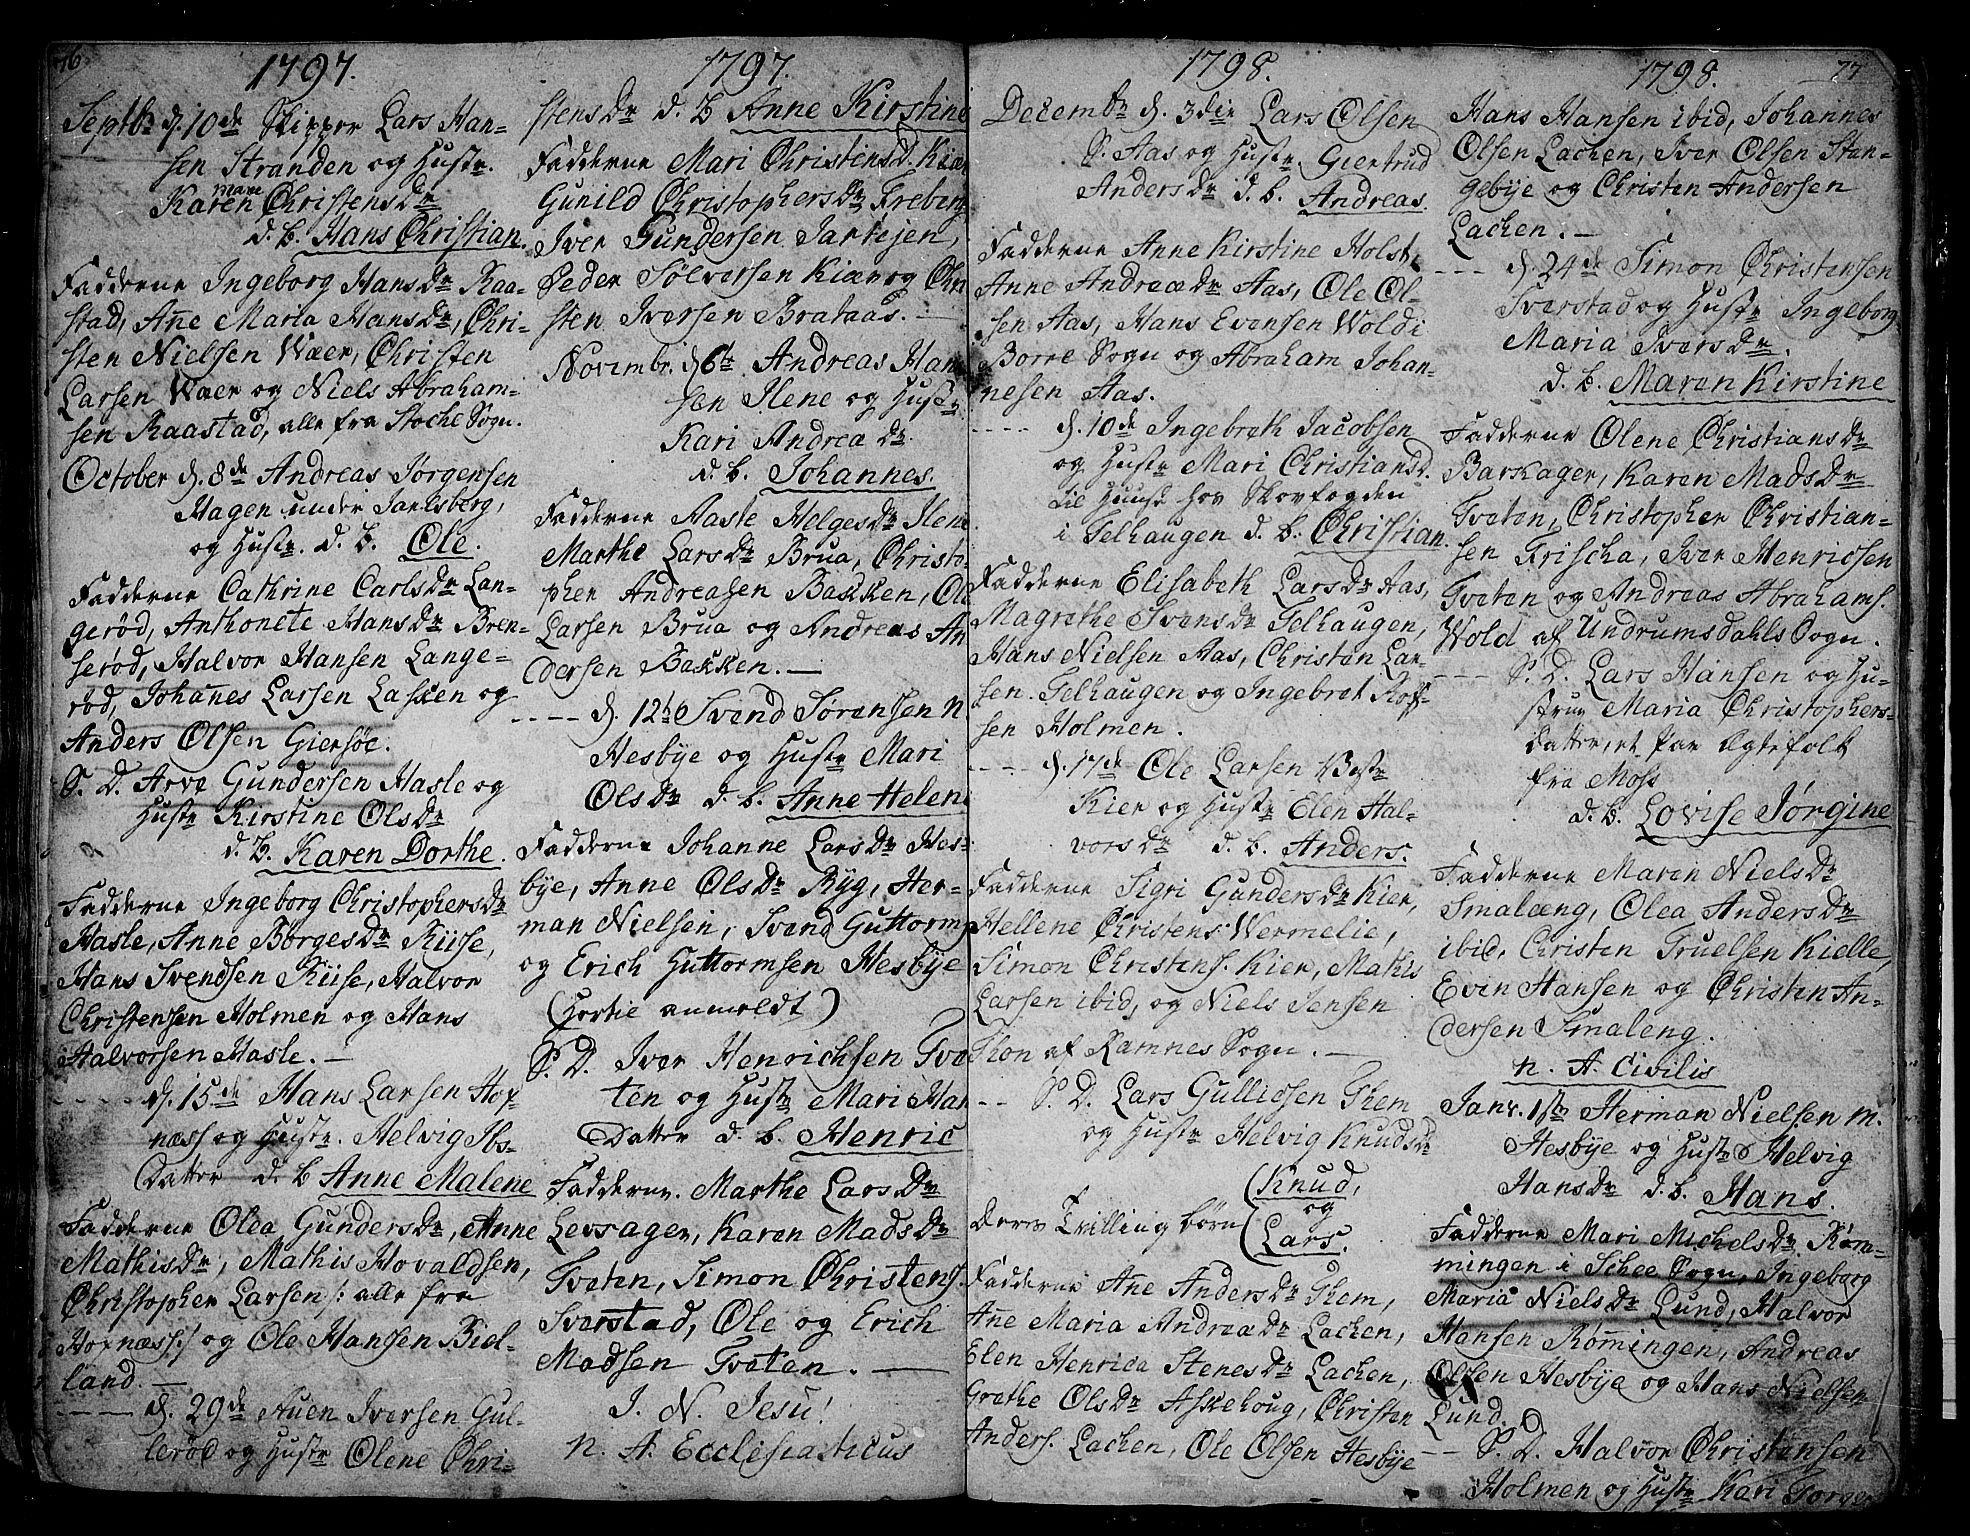 76
1797.
Septbr d. 10de Skipper Lars Han-
sen Stranden og Hustr.
Karen Marie Christensdr
d. b. Hans Christian.
Fadderne Ingeborg Hansdr Raa-
stad, Anne Maria Hansdr, Chri-
sten Nielsen Wäer, Christen
Larsen Wäer og Niels Abraham-
sen Raastad, alle fra Stoche Sogn.
October d. 8de Andreas Jørgensen
Hagen under Jarlsberg,
og Hustr. d. b. Ole.
Fadderne Cathrine Carlsdr Lan-
gerød, Anthonete Hansdr Bren-
serød, Halvor Hansen Lange-
rød, Johannes Larsen Lascken og
Anders Olsen Giersøe.
S. D. Arve Gundersen Hasle og
Hustr Kirstine Olsdr
d. b. Karen Dorthe.
Fadderne Ingeborg Christophersdr
Hasle, Anne Børgesdr Kiise,
Hans Svendsen Kiise, Halvor
Christensen Holmen og Hans
Halvorsen Hasle. —
d. 15de Hans Larsen Hof-
næss og Hustr. Helvig Ibs-
Datter d. b Anne Malene
Fadderne Olea Gundersdr, Anne
Mathisdr, Mathis Hovaldsen,
Christopher Larsen /: alle fra
Hofnæss:/ og Ole Hansen Biel-
land. —
---- d. 29de Auen Iversen Gul-
lerød og Hustr Olene Chri-
1797.
stensdr d. b Anne Kirstine
Fadderne Mari Christensd. Kiær
Gunild Christophersdr Freberg
Iver Gundersen Jarlejen,
Peder Sølversen Kiær og Chri
sten Iversen Brataas. —
Novembr. d 6te Andreas Han
sen Ilene og Hustr
Kari Andreadr.
d. b. Johannes.
Fadderne Aaste Helgesdr Ilene
Marthe Larsdr Brua, Christo-
pher Andreasen Bakken, Ole
Larsen Brua og Andreas An
dersen Bakken. —
---- d. 12te Svend Sørensen N.
Hesbye og Hustr Mari
Olsdr d. b. Anne Helene
Fadderne Johanne Larsdr Hes-
bye, Anne Olsdr Ryg, Her-
man Nielsen, Svend Guttorms
og Erich Guttormsen Hesbye
(Hortie anmeldt)
S. D. Iver Henrichsen Tve
ten og Hustr Mari Han
Datter d. b. Henric
Fadderne. Marthe Larsdr
Levsager, Karen Madsdr
Tveten, Simon Christens.
Sverstad, Ole og Erich
Madsen Tveten. —
I. N. Jesu!
N. A. Ecclesiasticus
1798.
Decembr d. 3die Lars Olsen
S. Aas og Hustr. Giertrud
Andersdr d. b. Andreas.
Fadderne Anne Kirstine Holst,
Anne Andreædr Aas, Ole Ol-
sen Aas, Hans Evensen Wold i
Borre Sogn og Abraham Johan-
nesen Aas.
---- d. 10de Ingebreth Jacobsen
og Hustr Mari Christiansd.
til Huuse hos Skovfogden
i Telhaugen d. b. Christian.
Fadderne Elisabeth Larsdr Aas,
Magrethe Svensdr Telhaugen,
Hans Nielsen Aas, Christen Lar-
sen. Telhaugen og Ingebret Rolf-
sen Holmen.
---- d. 17de Ole Larsen Vestr
Kier og Hustr Elen Hal-
vorsdr d. b. Anders.
Fadderne Sigri Gundersdr Kier,
Hellene Christens. Wermelie,
Simon Christens. Kier, Mathis
Larsen ibid, og Niels Jensen
Thon af Ramnes Sogn. —
-- S. D. Lars Gullicsen Them
og Hustr Helvig Knudsdr
Deres Tvilling børn (Knud,
og
Lars.
Fadderne Ane Andersdr Them,
Ane Maria Andreadr Lachen,
Elen Henrica Stenesdr Lachen,
Grethe Olsdr Askehoug, Christen
Anders. Lachen, Ole Olsen Hesbye
1798. 77
Hans Hansen ibid, Johannes
Olsen Lachen, Iver Olsen Stan-
gebye og Christen Andersen
Lachen. —
--- d. 24de Simon Christensen
Sverstad og Hustr Ingeborg
Maria Iversdr.
d. b. Maren Kirstine
Fadderne Olene Christiansdr
Barkager, Karen Madsdr
Tveten, Christopher Christian-
sen Frischa, Iver Henricsen
Tveten og Andreas Abrahams.
Wold af Undrumsdahls Sogn.
--- S. D. Lars Hansen og Hu-
strue Maria Christophers-
datter, et Par Ægtefolk
fra Moss
d. b. Lovise Jørgine
Fadderne Maren Nielsdr
Smaleng, Olea Andersdr
ibid, Christen Truelsen Kielle,
Even Hansen og Christen An-
dersen Smaleng.
N. A. Civilis
Janv. 1ste Herman Nielsen M.
Hesbye og Hustr Helvig
Hansdr d. b. Hans.
Fadderne Mari Michelsdr Røm-
mingen i Schee Sogn, Ingeborg
Maria Nielsdr Lund, Halvor
Hansen Rømingen, Andreas
Olsen Hesbye og Hans Nielsen
Lund.
-- S. D. Halvor Christensen
Holmen og Hustr Kari Torger